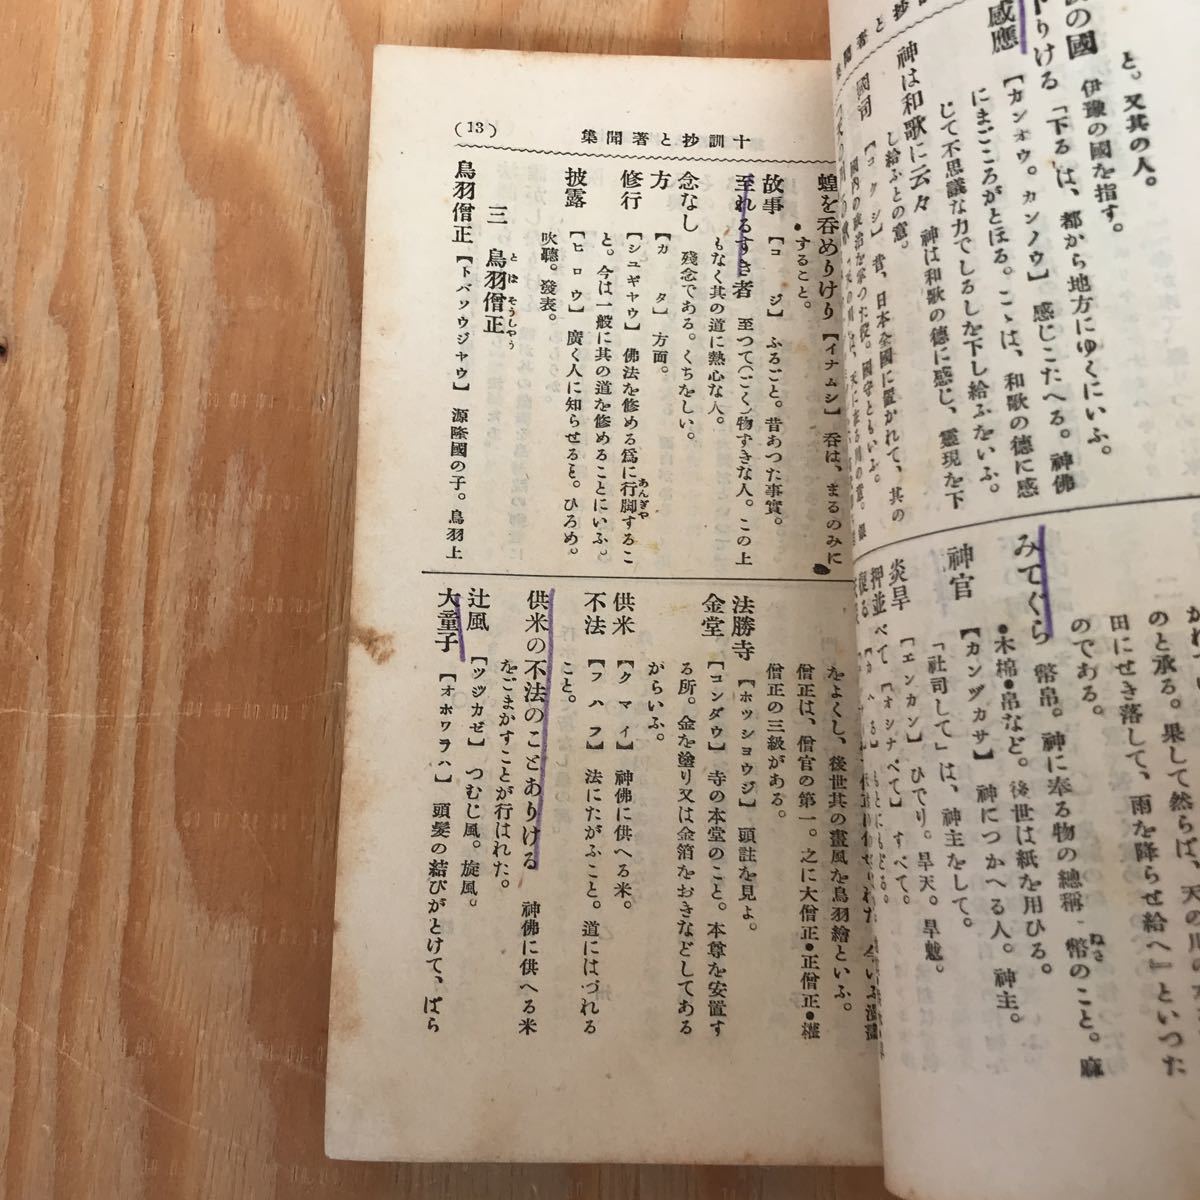 と。又其の人。
の國 伊豫の國を指す。
下りける 「下る」は、都から地方にゆくにいふ。
感應 【カンオウ。カンノウ】 感じこたへる。神佛
にまごころがとほる。こゝは、和歌の德に感
じて不思議な力でしるしを下し給ふをいふ。
神は和歌に云々 神は和歌の德に感じ、靈現を下
し給ふとの意。
國司 【コクシ】 昔、日本全國に置かれて、其の
國內の政治を掌つた役。國守ともいふ。
のと承る。果して然らば、天の川の
田にせき落して、雨を降らせ給へ』といつた
のである。
みてぐら 幣帛。神に奉る物の總稱 幣のこと。麻
ぬさ
●木棉●帛など。後世は紙を用ひる。
神官 【カンヅカサ】 神につかへる人。神主。
「社司して」は、神主をして。
炎旱 【エンカン】 ひでり。旱天。旱魃。
押並べて 【オシナベて】 すべて。
十訓抄と著聞集
(13)
蝗を呑めりけり 【イナムシ】 呑は、まるのみに
すること。
故事 【コ ジ】 ふるごと。昔あつた事實。
至れるすき者 至つて(ごく)物ずきな人。この上
もなく其の道に熱心な人。
念なし 殘念である。くちをしい。
方 【カ タ】 方面。
修行 【シユギヤウ】 佛法を修める爲に行脚するこ
あんぎや
と。今は一般に其の道を修めることにいふ。
披露 【ヒロウ】 廣く人に知らせると。ひろめ。
吹聽。發表。
三 鳥羽僧正
とば そうしやう
鳥羽僧正 【トバソウジヤウ】 源隆國の子。鳥羽上
をよくし、後世其の畫風を鳥羽繪といふ。
僧正は、僧官の第一。之に大僧正●正僧正●權
僧正の三級がある。
法勝寺 【ホツシヨウジ】 頭註を見よ。
金堂 【コンダウ】 寺の本堂のこと。本尊を安置す
る所。金を塗り又は金箔をおきなどしてある
がらいふ。
供米 【クマイ】 神佛に供へる米。
不法 【フハフ】 法にたがふこと。道にはづれる
こと。
供米の不法のことありける 神佛に供へる米
をごまかすことが行はれた。
辻風 【ツジカゼ】 つむじ風。旋風。
大童子 【オホワラハ】 頭髮の結びがとけて、ばら